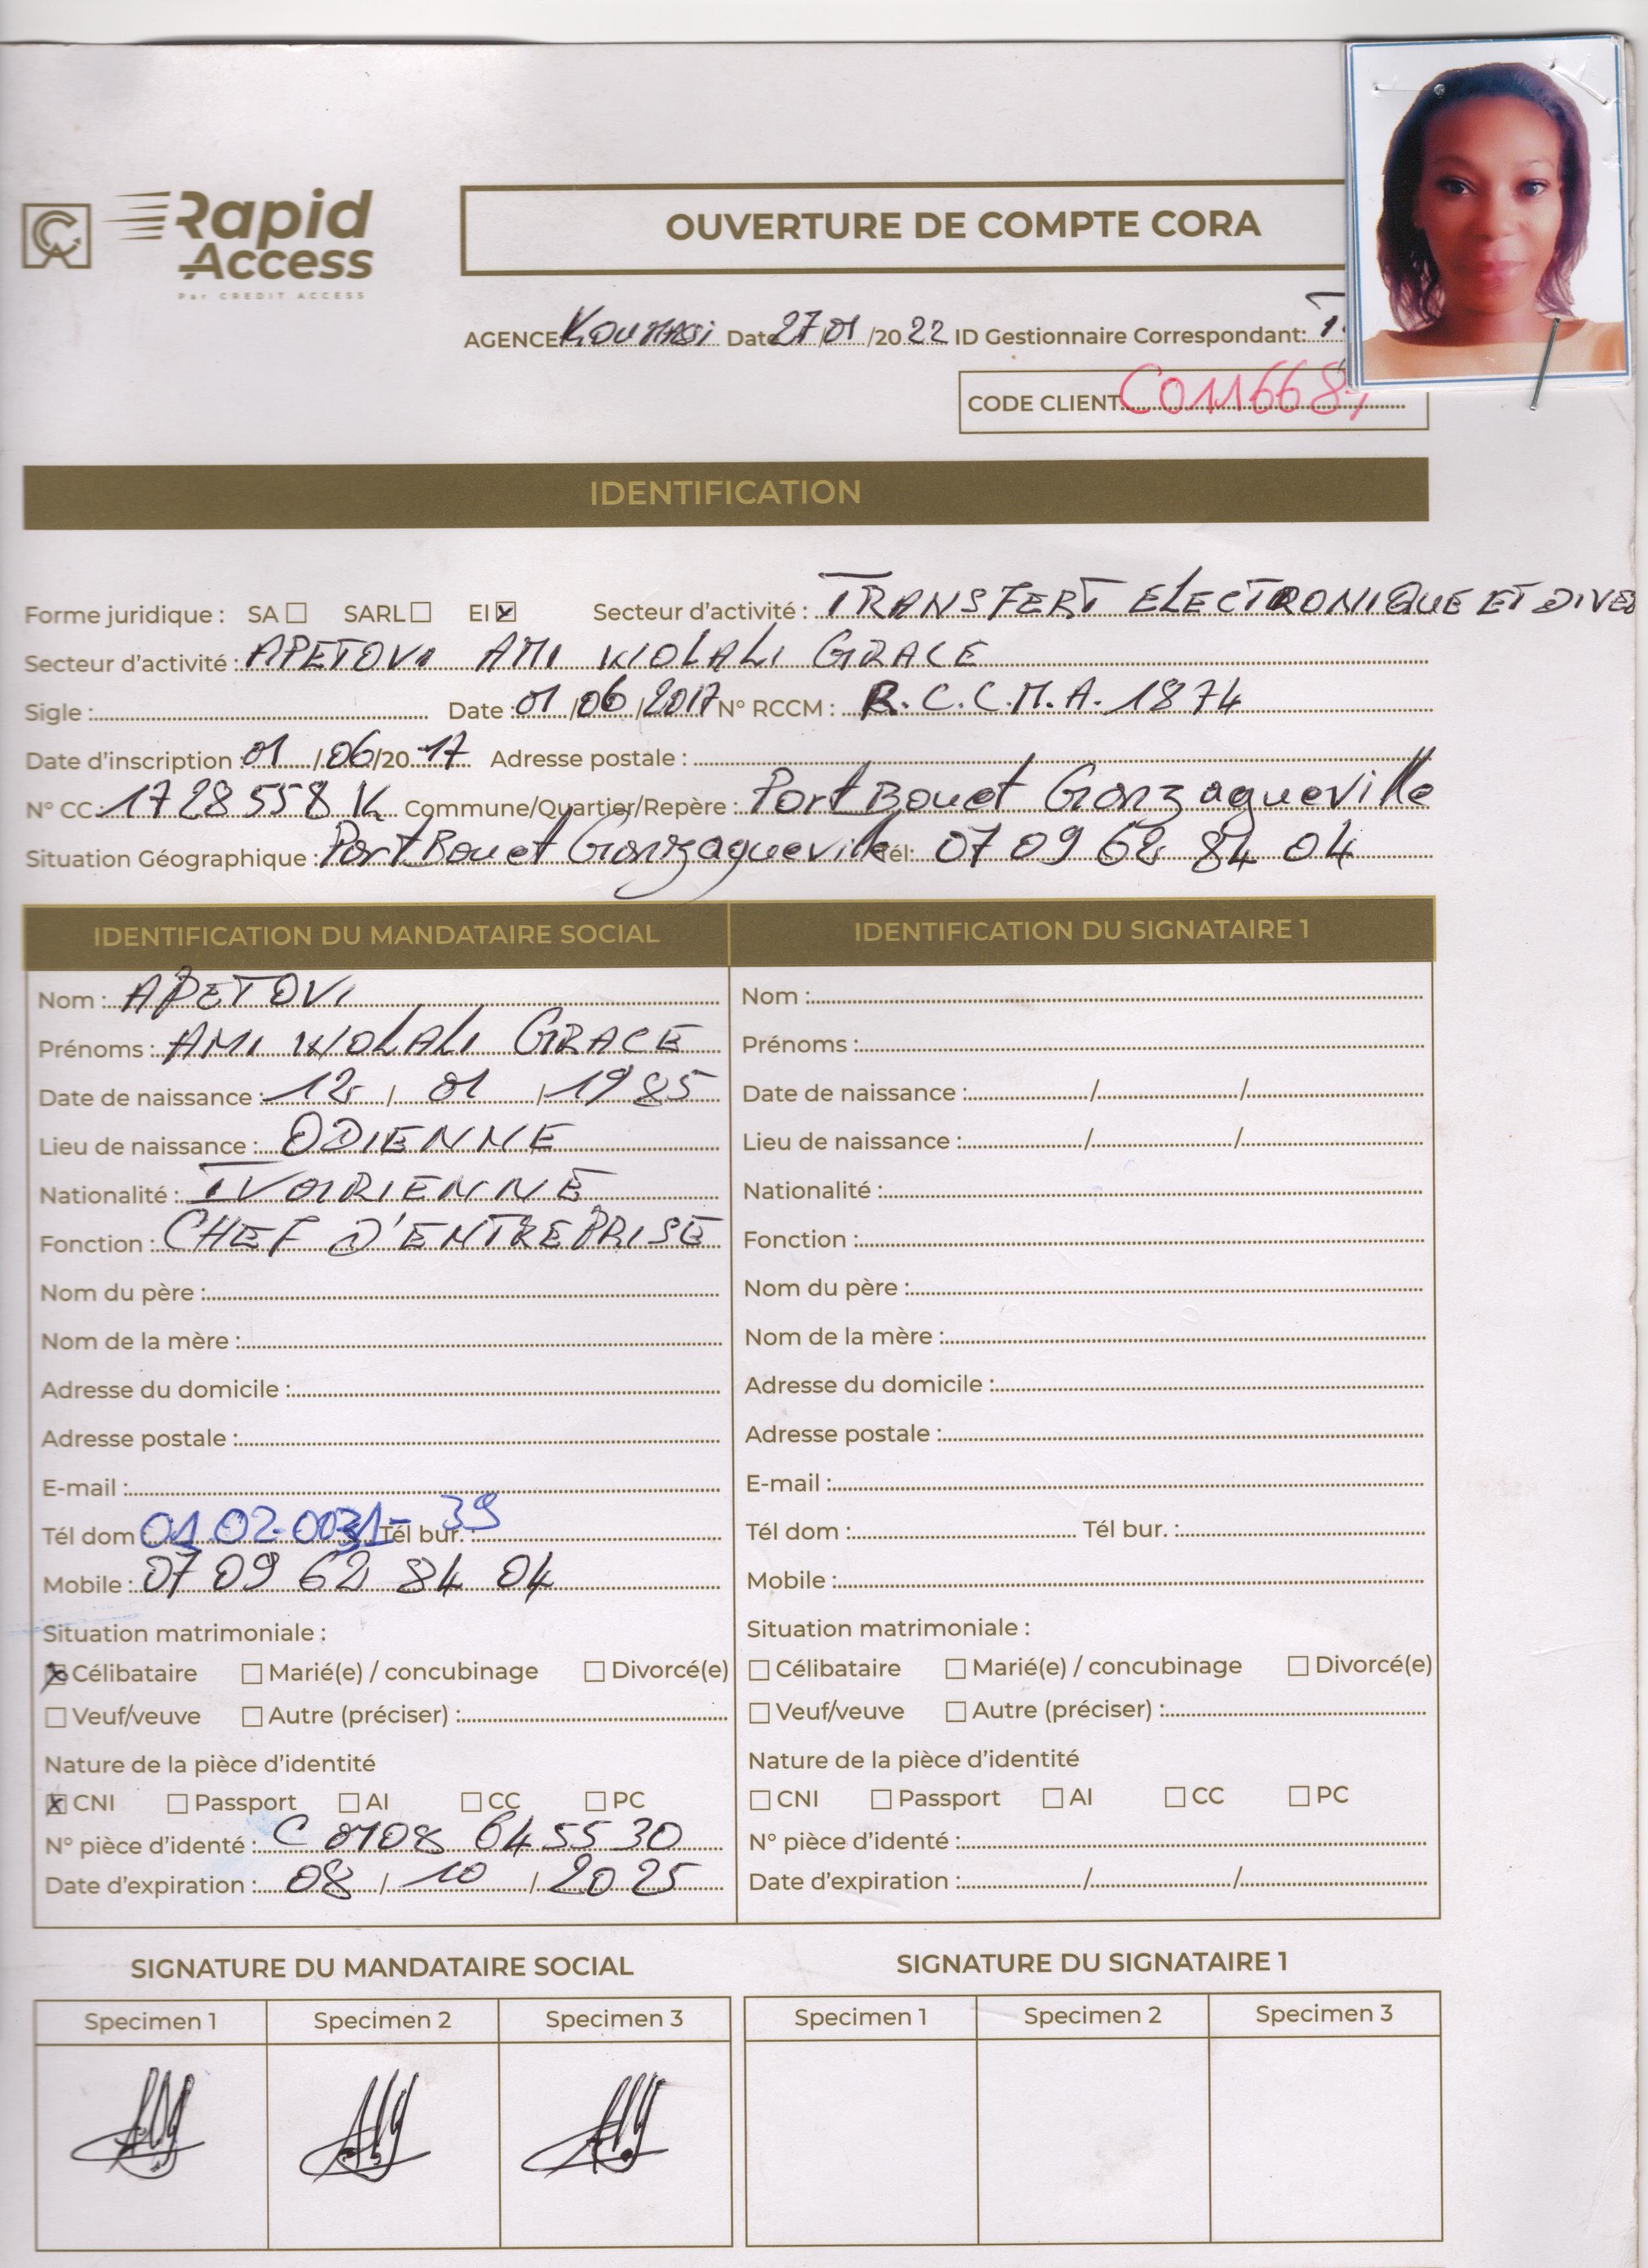 Rapid
Access
Par CREDIT ACCESS
OUVERTURE DE COMPTE CORA
AGENCE Koumassi Date 27/01/2022 ID Gestionnaire Correspondant:
CODE CLIENT C011668
IDENTIFICATION
Forme juridique : SA SARL EI Secteur d'activité : TRANSFERT ELECTRONIQUE ET DIVERS
Secteur d'activité : APETOVI AMI WOLALI GRACE
Sigle : Date : 01/06/2017 N° RCCM : R.C.C.M.A. 1874
Date d'inscription : 01/06/2017 Adresse postale :
N° CC : 1728558 K Commune/Quartier/Repère : Port Bouet Gonzagueville
Situation Géographique : Port Bouet Gonzagueville Tél: 07 09 62 84 04
IDENTIFICATION DU MANDATAIRE SOCIAL
Nom : APETOVI
Prénoms : AMI WOLALI GRACE
Date de naissance : 12 / 01 / 1985
Lieu de naissance : ODIENNE
Nationalité : IVOIRIENNE
Fonction : CHEF D'ENTREPRISE
Nom du père :
Nom de la mère :
Adresse du domicile :
Adresse postale :
E-mail :
Tél dom 01.02.00 - 39 Tél bur. :
Mobile : 07 09 62 84 04
Situation matrimoniale :
Célibataire Marié(e) / concubinage Divorcé(e)
Veuf/veuve Autre (préciser) :
Nature de la pièce d'identité
CNI Passport AI CC PC
N° pièce d'identé : C 0108 6455 30
Date d'expiration : 08 / 10 / 2025
IDENTIFICATION DU SIGNATAIRE 1
Nom :
Prénoms :
Date de naissance : / /
Lieu de naissance : / /
Nationalité :
Fonction :
Nom du père :
Nom de la mère :
Adresse du domicile :
Adresse postale :
E-mail :
Tél dom : Tél bur. :
Mobile :
Situation matrimoniale :
Célibataire Marié(e) / concubinage Divorcé(e)
Veuf/veuve Autre (préciser) :
Nature de la pièce d'identité
CNI Passport AI CC PC
N° pièce d'identé :
Date d'expiration : / /
SIGNATURE DU MANDATAIRE SOCIAL
Specimen 1 Specimen 2 Specimen 3
SIGNATURE DU SIGNATAIRE 1
Specimen 1 Specimen 2 Specimen 3